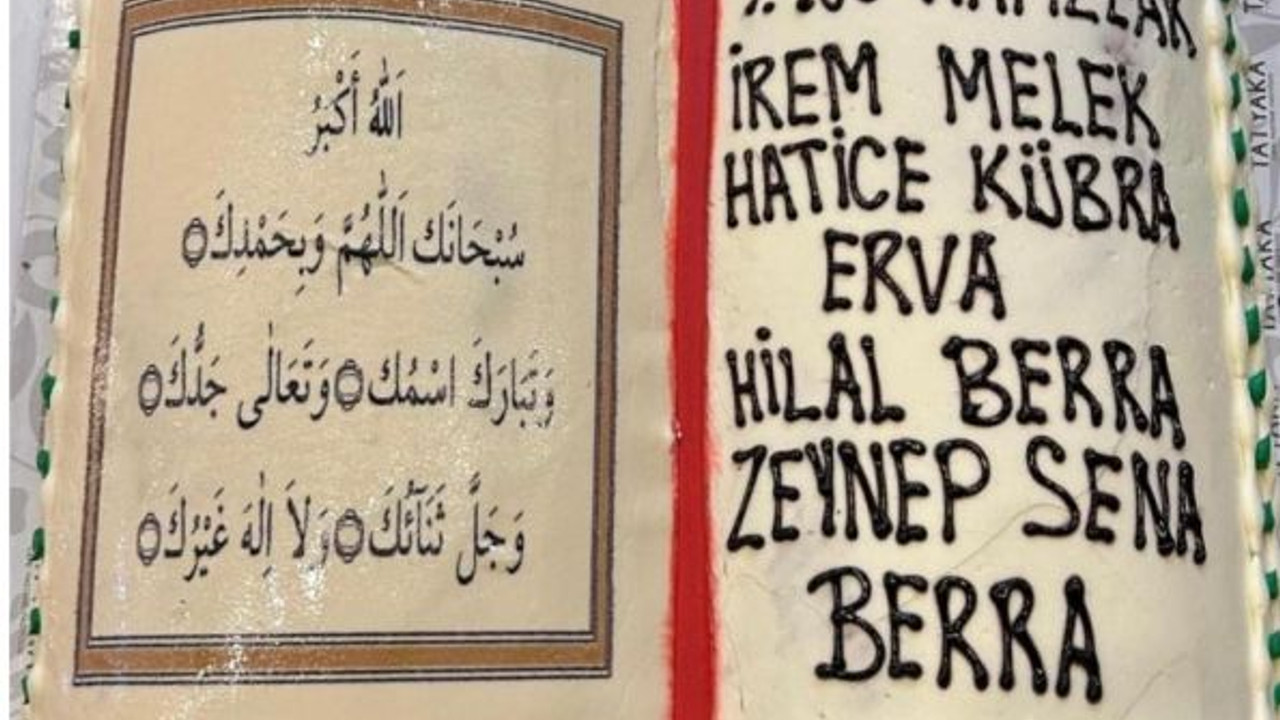 اَللّٰهُ أَكْبَرُ
سُبْحَانَكَ اَللّٰهُمَّ وَبِحَمْدِكَ
وَتَبَارَكَ اسْمُكَ وَتَعَالٰى جَدُّكَ
وَجَلَّ ثَنَآئُكَ وَلاَ اِلٰهَ غَيْرُكَ
İREM MELEK
HATİCE KÜBRA
ERVA
HİLAL BERRA
ZEYNEP SENA
BERRA
TATYAKA